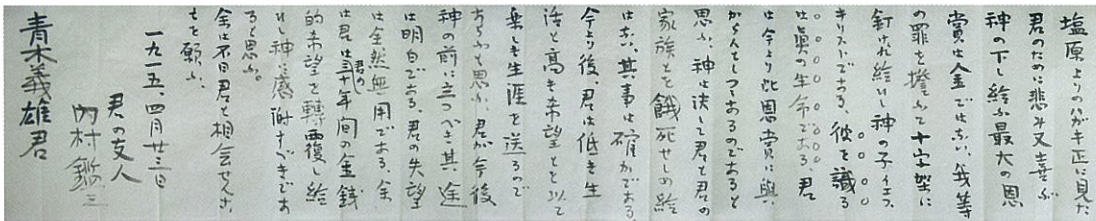 塩原よりのハガキ正に見た
君のために悲み又喜ぶ
神の下し給ふ最大の恩
賞は金ではない、我等
の罪を擔ふて十字架に
釘けれ給ひし神の子イエス
キリストである、彼を識る
は眞の生命である、君
は今より此恩賞に與
からんとしつゝあるのであると
思ふ、神は決して君と君の
家族とを餓死せしめ給
はない、其事は確かである、
今より後君は低き生
活と高き希望とを以て
楽しき生涯を送るので
あらふと思ふ、君が今後
神の前に立つべき其途
は明白である、君の失望
は全然無用である、余
は君は君の三十年間の金銭
的希望を轉覆し給
ひし神に感謝すべきであ
ると思ふ。
余は不日君と相会せんこ
とを願ふ、
一九一五、四月廿三日
君の友人
内村鑑三
青木義雄君